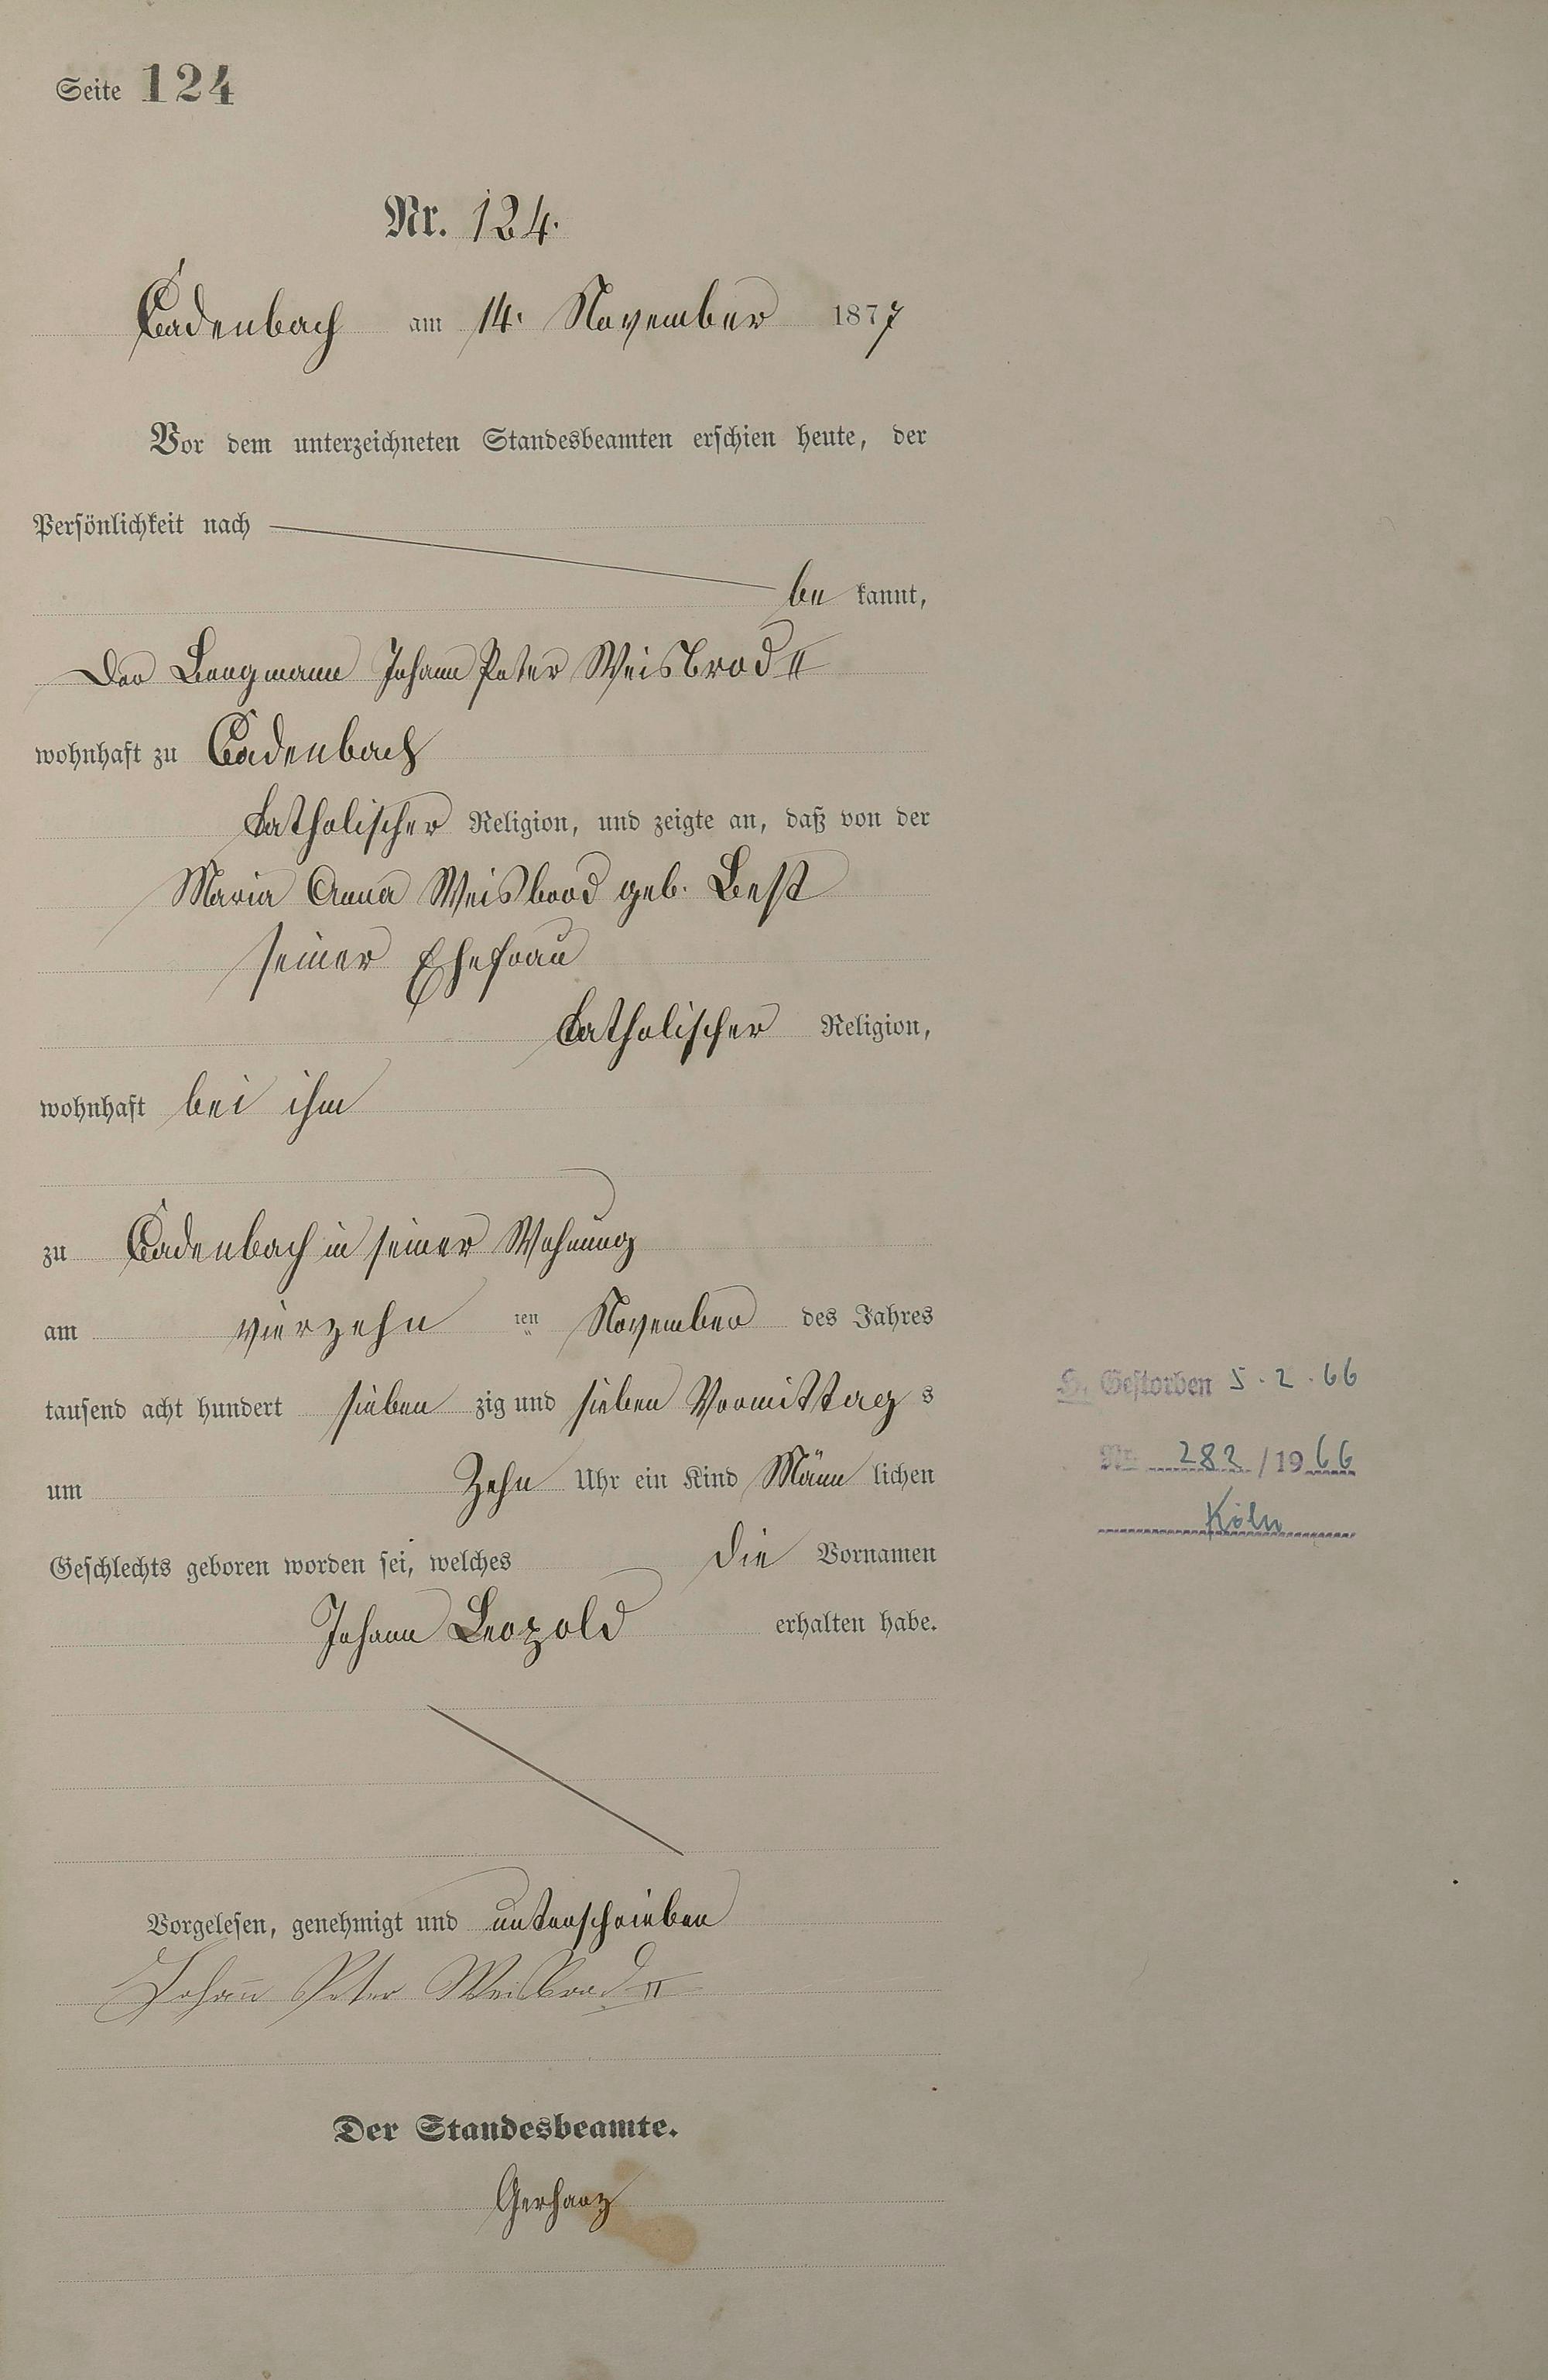 Seite 124
Nr. 124.
Cadenbach am 14. November 1877
Vor dem unterzeichneten Standesbeamten erschien heute, der
Persönlichkeit nach
be kannt,
Der Bergmann Johann Peter Weisbrod II
wohnhaft zu Cadenbach
katholischer Religion, und zeigte an, daß von der
Maria Anna Weisbrod geb. Best
seiner Ehefrau
katholischer Religion,
wohnhaft bei ihm
zu Cadenbach in seiner Wohnung
am vierzehn ten November des Jahres
tausend acht hundert sieben zig und sieben Vormittag s
um Zehn Uhr ein Kind Männ lichen
Geschlechts geboren worden sei, welches die Vornamen
Johann Leopold erhalten habe.
Vorgelesen, genehmigt und unterschrieben
Johann Peter Weisbrod II
Der Standesbeamte.
Gerharz
Gestorben 5.2.66
Nr. 282/1966
Köln